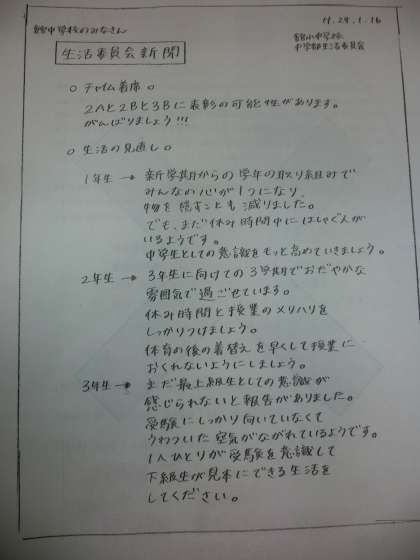 館中学校のみなさん
H.24.1.16
館小中学校
中学部生活委員会
生活委員会新聞
○ チャイム着席 ○
2Aと2Bと3Bに表彰の可能性があります。
がんばりましょう!!!
○ 生活の見直し ○
1年生 → 新学期からの学年の取り組みで
みんなの心が1つになり、
物を隠すことも減りました。
でも、まだ休み時間中にはしゃぐ人が
いるようです。
中学生としての意識をもっと高めていきましょう。
2年生 → 3年生に向けての3学期でおだやかな
雰囲気で過ごせています。
休み時間と授業のメリハリを
しっかりつけましょう。
体育の後の着替えを早くして授業に
おくれないようにしましょう。
3年生 → まだ最上級生としての意識が
感じられないと報告がありました。
受験にしっかり向いていなくて
うわついた空気がながれているようです。
1人ひとりが受験を意識して
下級生が見本にできる生活を
してください。